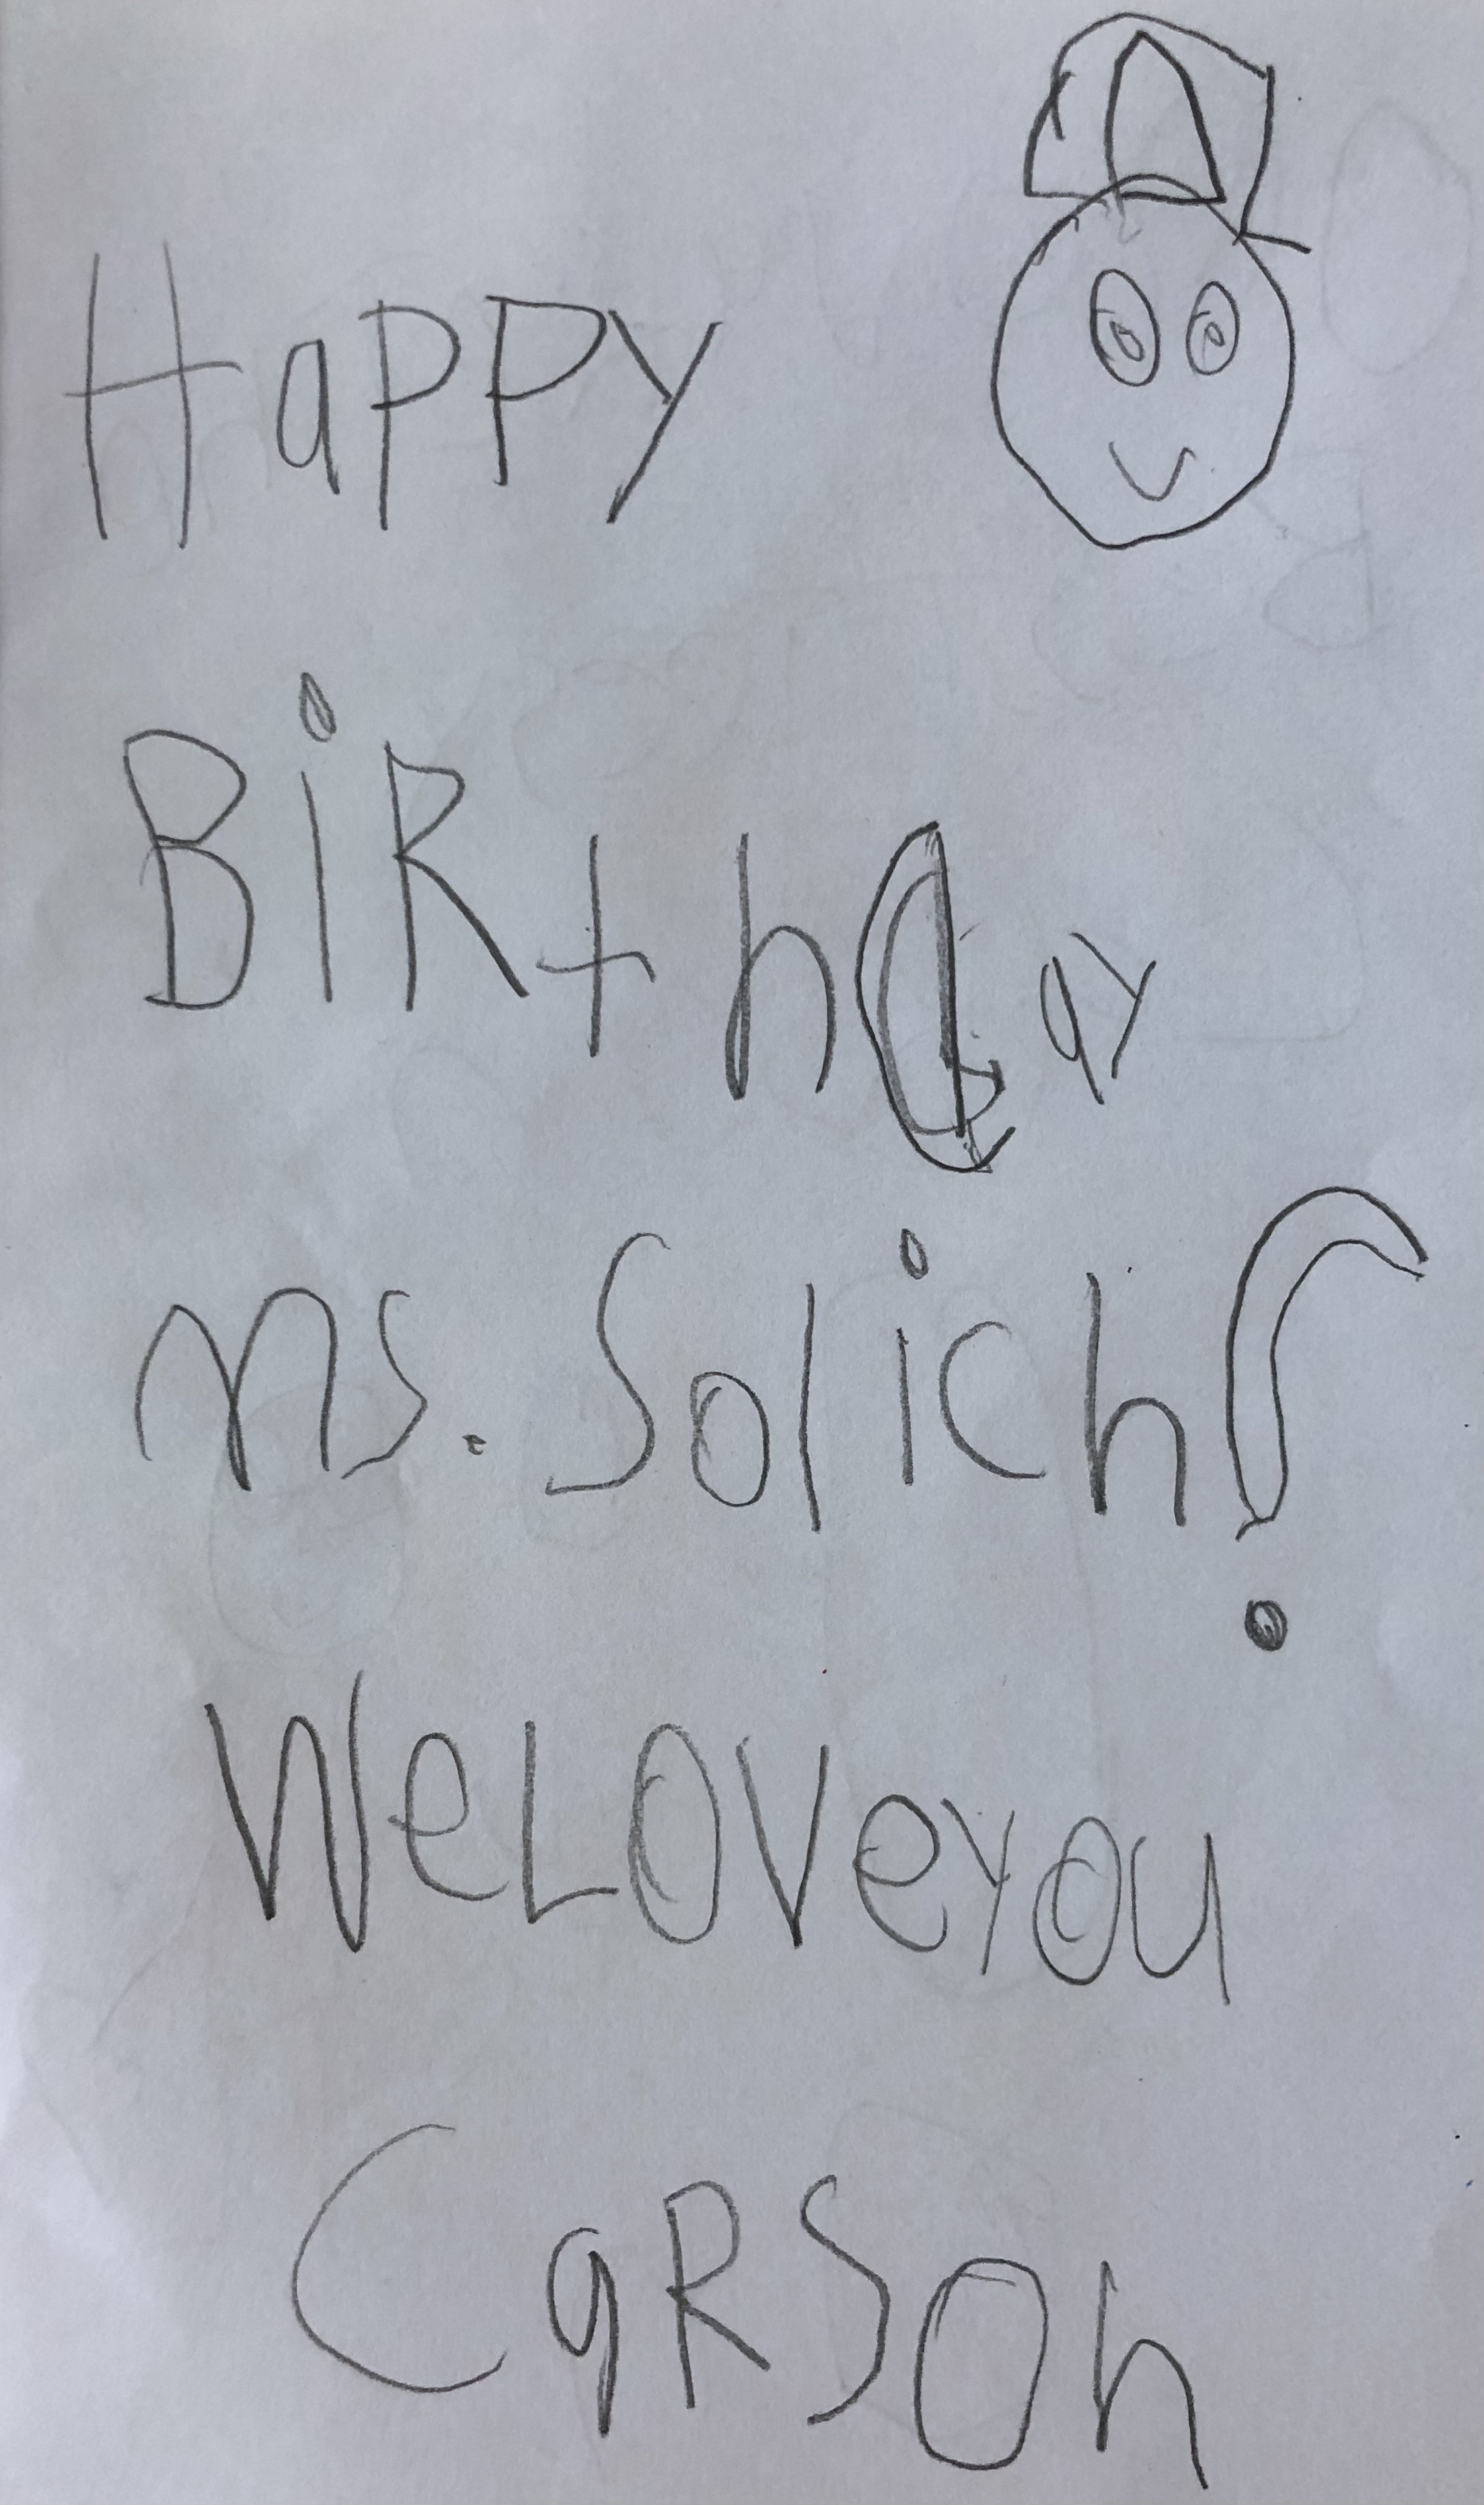 HaPPY
BiRthday
ms. Solich!
WeLoveyou
CaRSOn